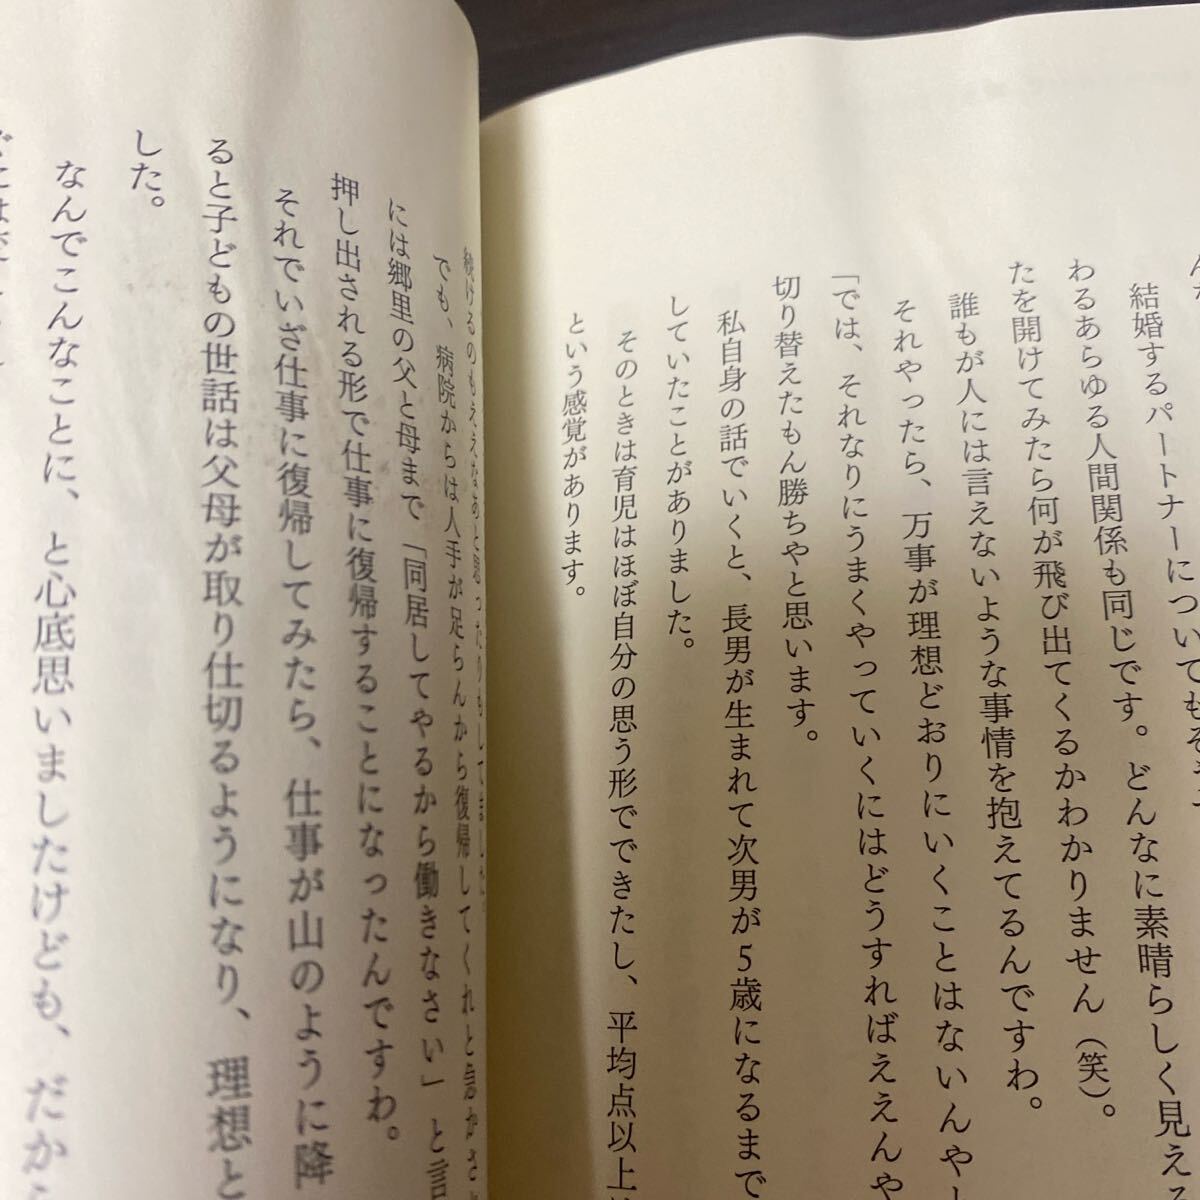 結婚するパートナーについてもそ
わるあらゆる人間関係も同じです。どんなに素晴らしく見える
たを開けてみたら何が飛び出てくるかわかりません（笑）。
誰もが人には言えないような事情を抱えてるんですわ。
それやったら、万事が理想どおりにいくことはないんや
「では、それなりにうまくやっていくにはどうすればええんや
切り替えたもん勝ちやと思います。
私自身の話でいくと、長男が生まれて次男が5歳になるまで
していたことがありました。
そのときは育児はほぼ自分の思う形でできたし、平均点以上
という感覚があります。
続けるのもええなあと思ったりもしてました。
でも、病院からは人手が足らんから復帰してくれと急かさ
には郷里の父と母まで「同居してやるから働きなさい」と言
押し出される形で仕事に復帰することになったんですわ。
それでいざ仕事に復帰してみたら、仕事が山のように降
ると子どもの世話は父母が取り仕切るようになり、理想と
した。
なんでこんなことに、と心底思いましたけども、だから